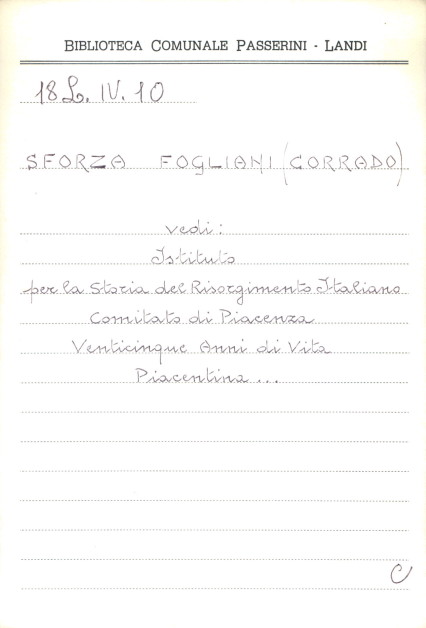 BIBLIOTECA COMUNALE PASSERINI - LANDI
18 L. IV. 10
SFORZA FOGLIANI (CORRADO)
vedi:
Istituto
per la Storia del Risorgimento Italiano
Comitato di Piacenza
Venticinque Anni di Vita
Piacentina ...
C